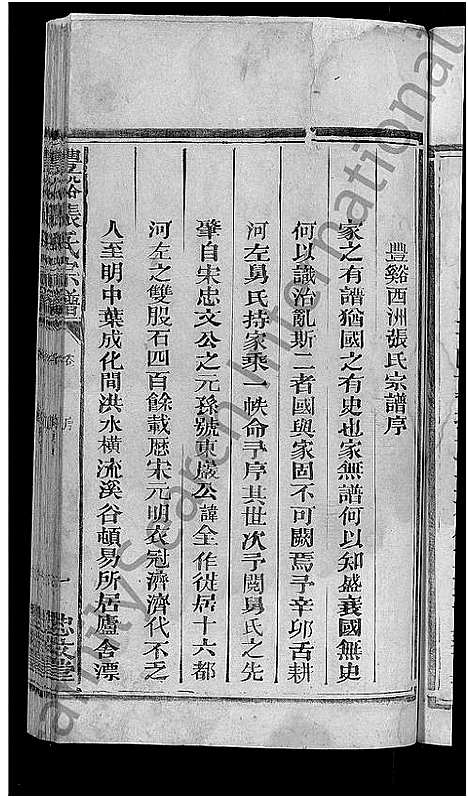 豐谿西洲張氏宗譜序
家之有譜猶國之有史也家無譜何以知盛衰國無史
何以識治亂斯二者國與家固不可闕焉予辛卯舌耕
河左舅氏持家乘一帙命予序其世次予閱舅氏之先
肇自宋忠文公之元孫號東巖公諱全作從居十六都
河左之雙股石四百餘載歷宋元明衣冠濟濟代不乏
人至明中葉成化間洪水橫流溪谷頓易所居廬舍漂
豐谿張氏宗譜
卷
序
一
忠文堂